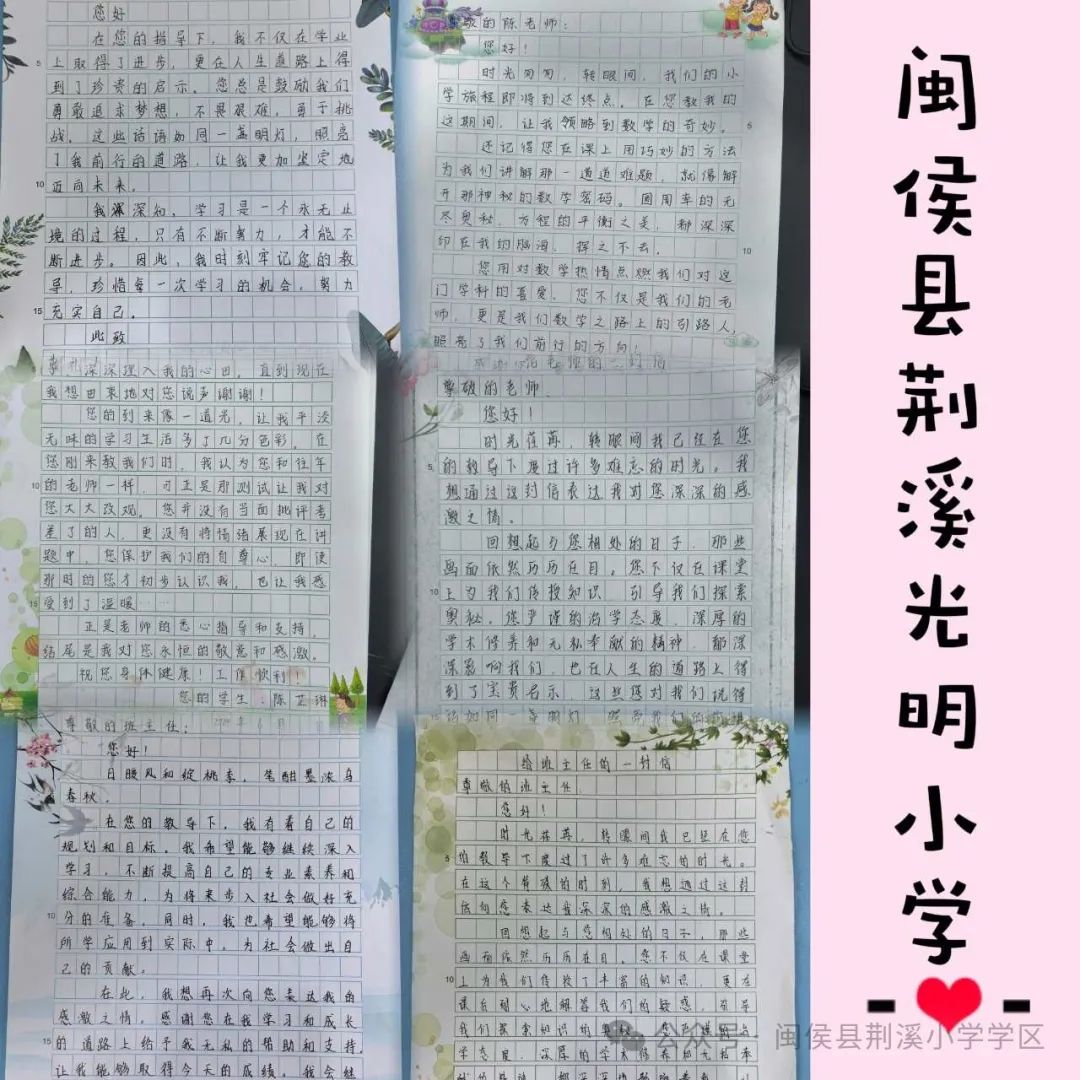 您好
在您的指导下，我不仅在学业
上取得了进步，更在人生道路上得
到了珍贵的启示。您总是鼓励我们
勇敢追求梦想，不畏艰难，勇于挑
战。这些话语如同一盏明灯，照亮
了我前行的道路，让我更加坚定地
迈向未来。
我深深知，学习是一个永无止
境的过程，只有不断努力，才能不
断进步。因此，我时刻牢记您的教
导，珍惜每一次学习的机会，努力
充实自己。
此致
尊敬的陈老师：
您好！
时光匆匆，转眼间，我们的小
学旅程即将到达终点。在您教我的
这期间，让我领略到数学的奇妙。
还记得您在课上用巧妙的方法
为我们讲解那一道道难题，就像解
开那神秘的数学密码。圆周率的无
尽奥秘，方程的平衡之美，都深深
印在我的脑海，挥之不去。
您用对数学热情点燃我们对这
门学科的喜爱。您不仅是我们的老
师，更是我们数学之路上的引路人，
照亮了我们前行的方向！
深深埋入我的心田，直到现在
我想由衷地对您说声谢谢！
您的到来像一道光，让我平淡
无味的学习生活多了几分色彩。在
您刚来教我们时，我认为您和往年
的老师一样，可正是那测试让我对
您大大改观。您并没有当面批评考
差了的人，更没有将情绪展现在讲
题中，您保护我们的自尊心，即使
那时的您才初步认识我，也让我感
受到了温暖……
正是老师的悉心指导和支持，
结尾是我对您永恒的敬意和感激。
祝您身体健康！工作愉利！
您的学生：陈芷琳
尊敬的老师：
您好！
时光荏苒，转眼间我已经在您
的教导下度过许多难忘的时光。我
想通过这封信表达我对您深深的感
激之情。
回想起与您相处的日子，那些
画面依然历历在目。您不仅在课堂
上为我们传授知识，引导我们探索
奥秘。您严谨的治学态度、深厚的
学术修养和无私奉献的精神，都深
深影响我们，也在人生的道路上得
到了宝贵启示，这些您对我们说得
尊敬的班主任：
您好！
日暖风和绽桃李，笔酣墨浓写
春秋。
在您的教导下，我有着自己的
规划和目标。我希望能够继续深入
学习，不断提高自己的专业素养和
综合能力，为将来步入社会做好充
分的准备。同时，我也希望能够将
所学应用到实际中，为社会做出自
己的贡献。
在此，我想再次向您表达我的
感激之情。感谢您在我学习和成长
的道路上给予我无私的帮助和支持，
让我能够取得今天的成绩。我会继
给班主任的一封信
尊敬的班主任
您好！
时光荏苒，转眼间我已经在您
的教导下度过了许多难忘的时光。
在这个特殊的时刻，我想通过这封
信向您表达我深深的感激之情。
回想起与您相处的日子，那些
画面依然历历在目。您不仅在课堂
上为我们传授了丰富的知识，更在
课后耐心地解答我们的疑惑，引导
闽侯县荆溪光明小学
公众号·闽侯县荆溪小学学区